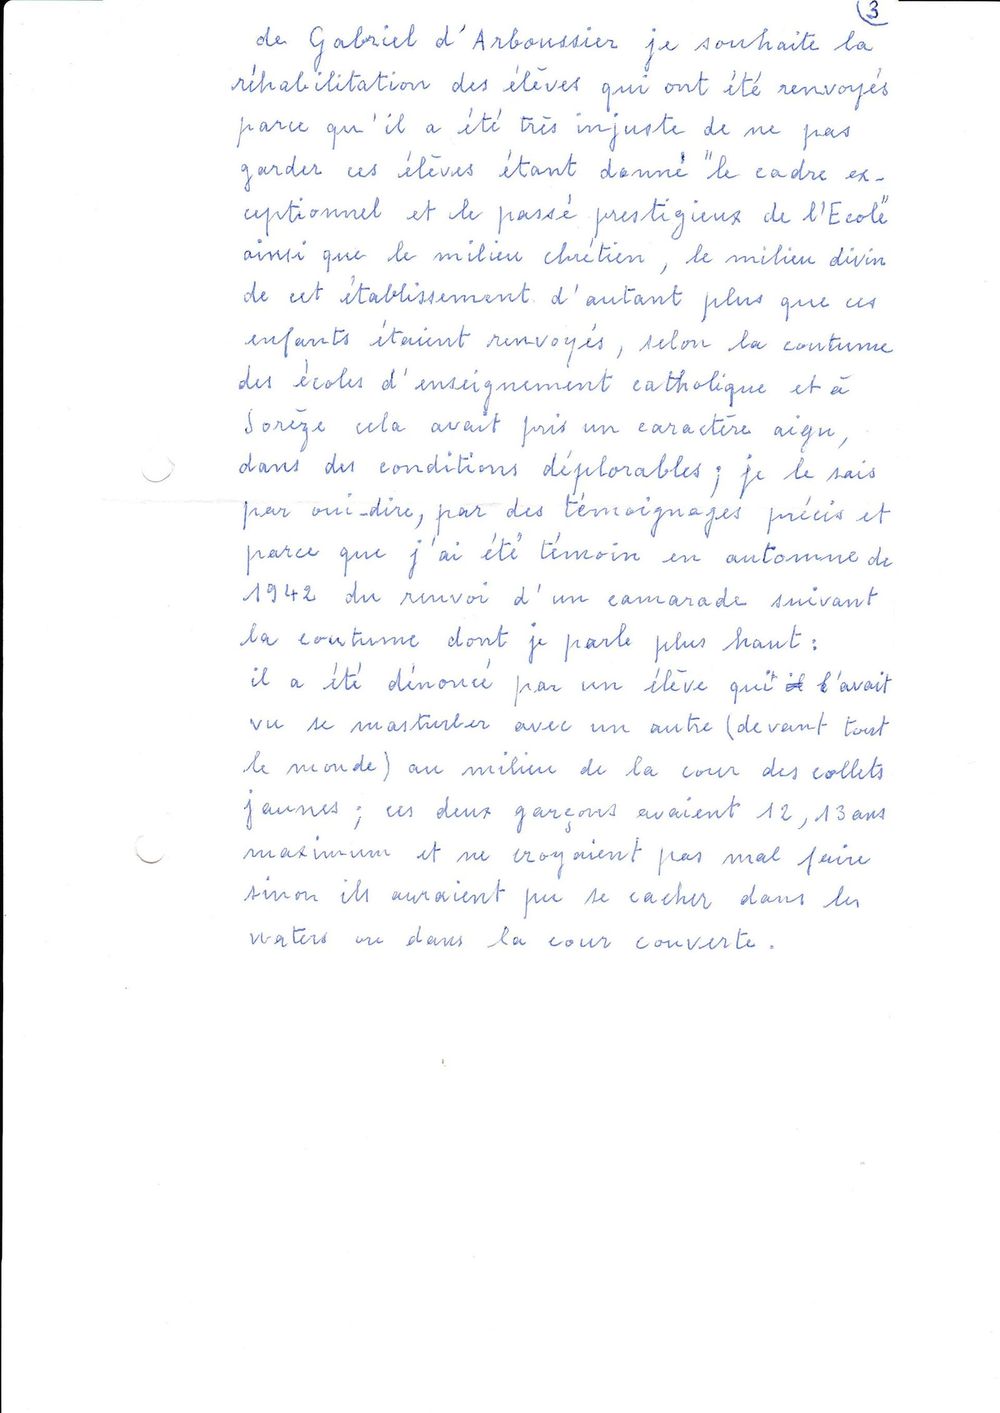 3
de Gabriel d'Arboussier je souhaite la
réhabilitation des élèves qui ont été renvoyés
parce qu'il a été très injuste de ne pas
garder ces élèves étant donné "le cadre ex-
ceptionnel et le passé prestigieux de l'Ecole"
ainsi que le milieu chrétien, le milieu divin
de cet établissement d'autant plus que ces
enfants étaient renvoyés, selon la coutume
des écoles d'enseignement catholique et à
Sorèze cela avait pris un caractère aigu,
dans des conditions déplorables; je le sais
par ouï-dire, par des témoignages précis et
parce que j'ai été témoin en automne de
1942 du renvoi d'un camarade suivant
la coutume dont je parle plus haut:
il a été dénoncé par un élève qui l'avait
vu se masturber avec un autre (devant tout
le monde) au milieu de la cour des collets
jaunes; ces deux garçons avaient 12, 13 ans
maximum et ne croyaient pas mal faire
sinon ils auraient pu se cacher dans les
waters ou dans la cour couverte.